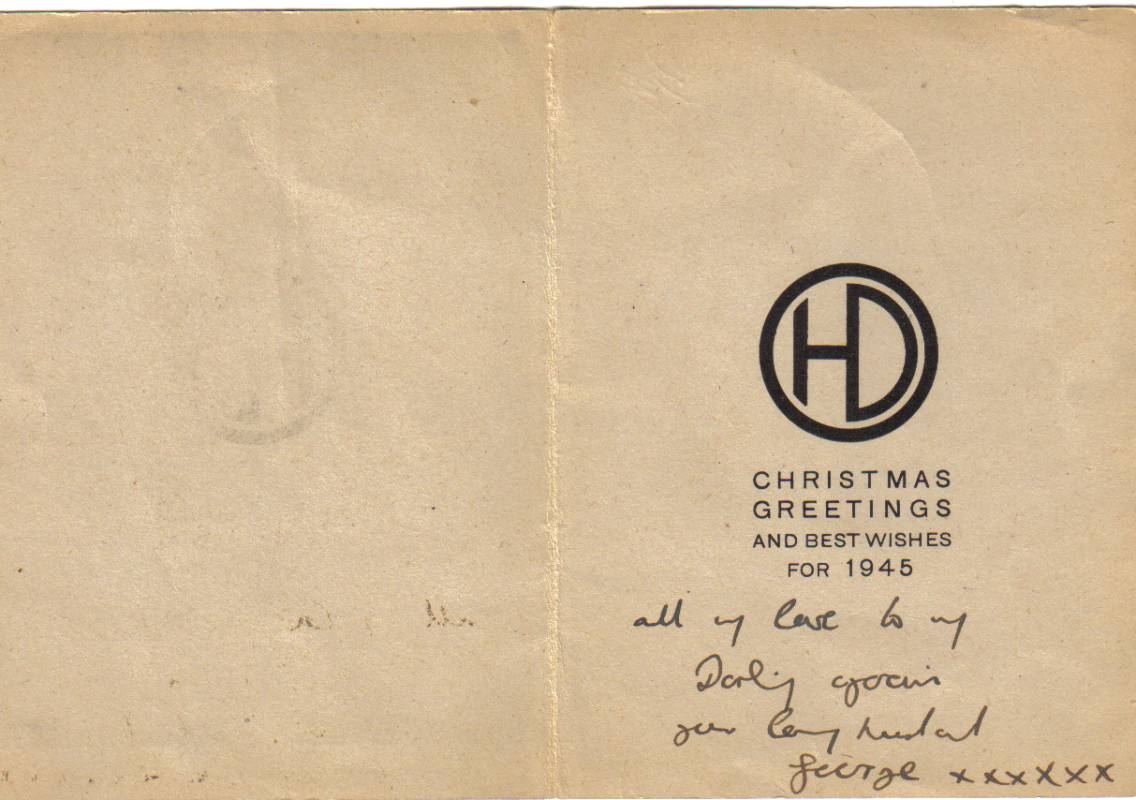 HD
CHRISTMAS
GREETINGS
AND BEST WISHES
FOR 1945
all my love to my
Darling
your loving husband
George xxxxxxx